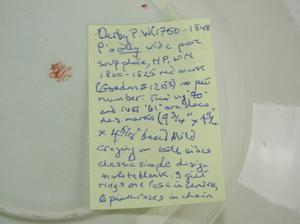 Derby P.W (1750-1848
P's only wide pore
soup plate, H.P. with
1800-1825 red mark
(Goddens #1253) no pat
number. Time' y "70"
and rust "61" are deco
des. marks (9 3/4" x
x base) Mild
crazing on both sides
classic simple design
on white blank. 3 gilt
rings one rose in centre,
6 pink roses in chain